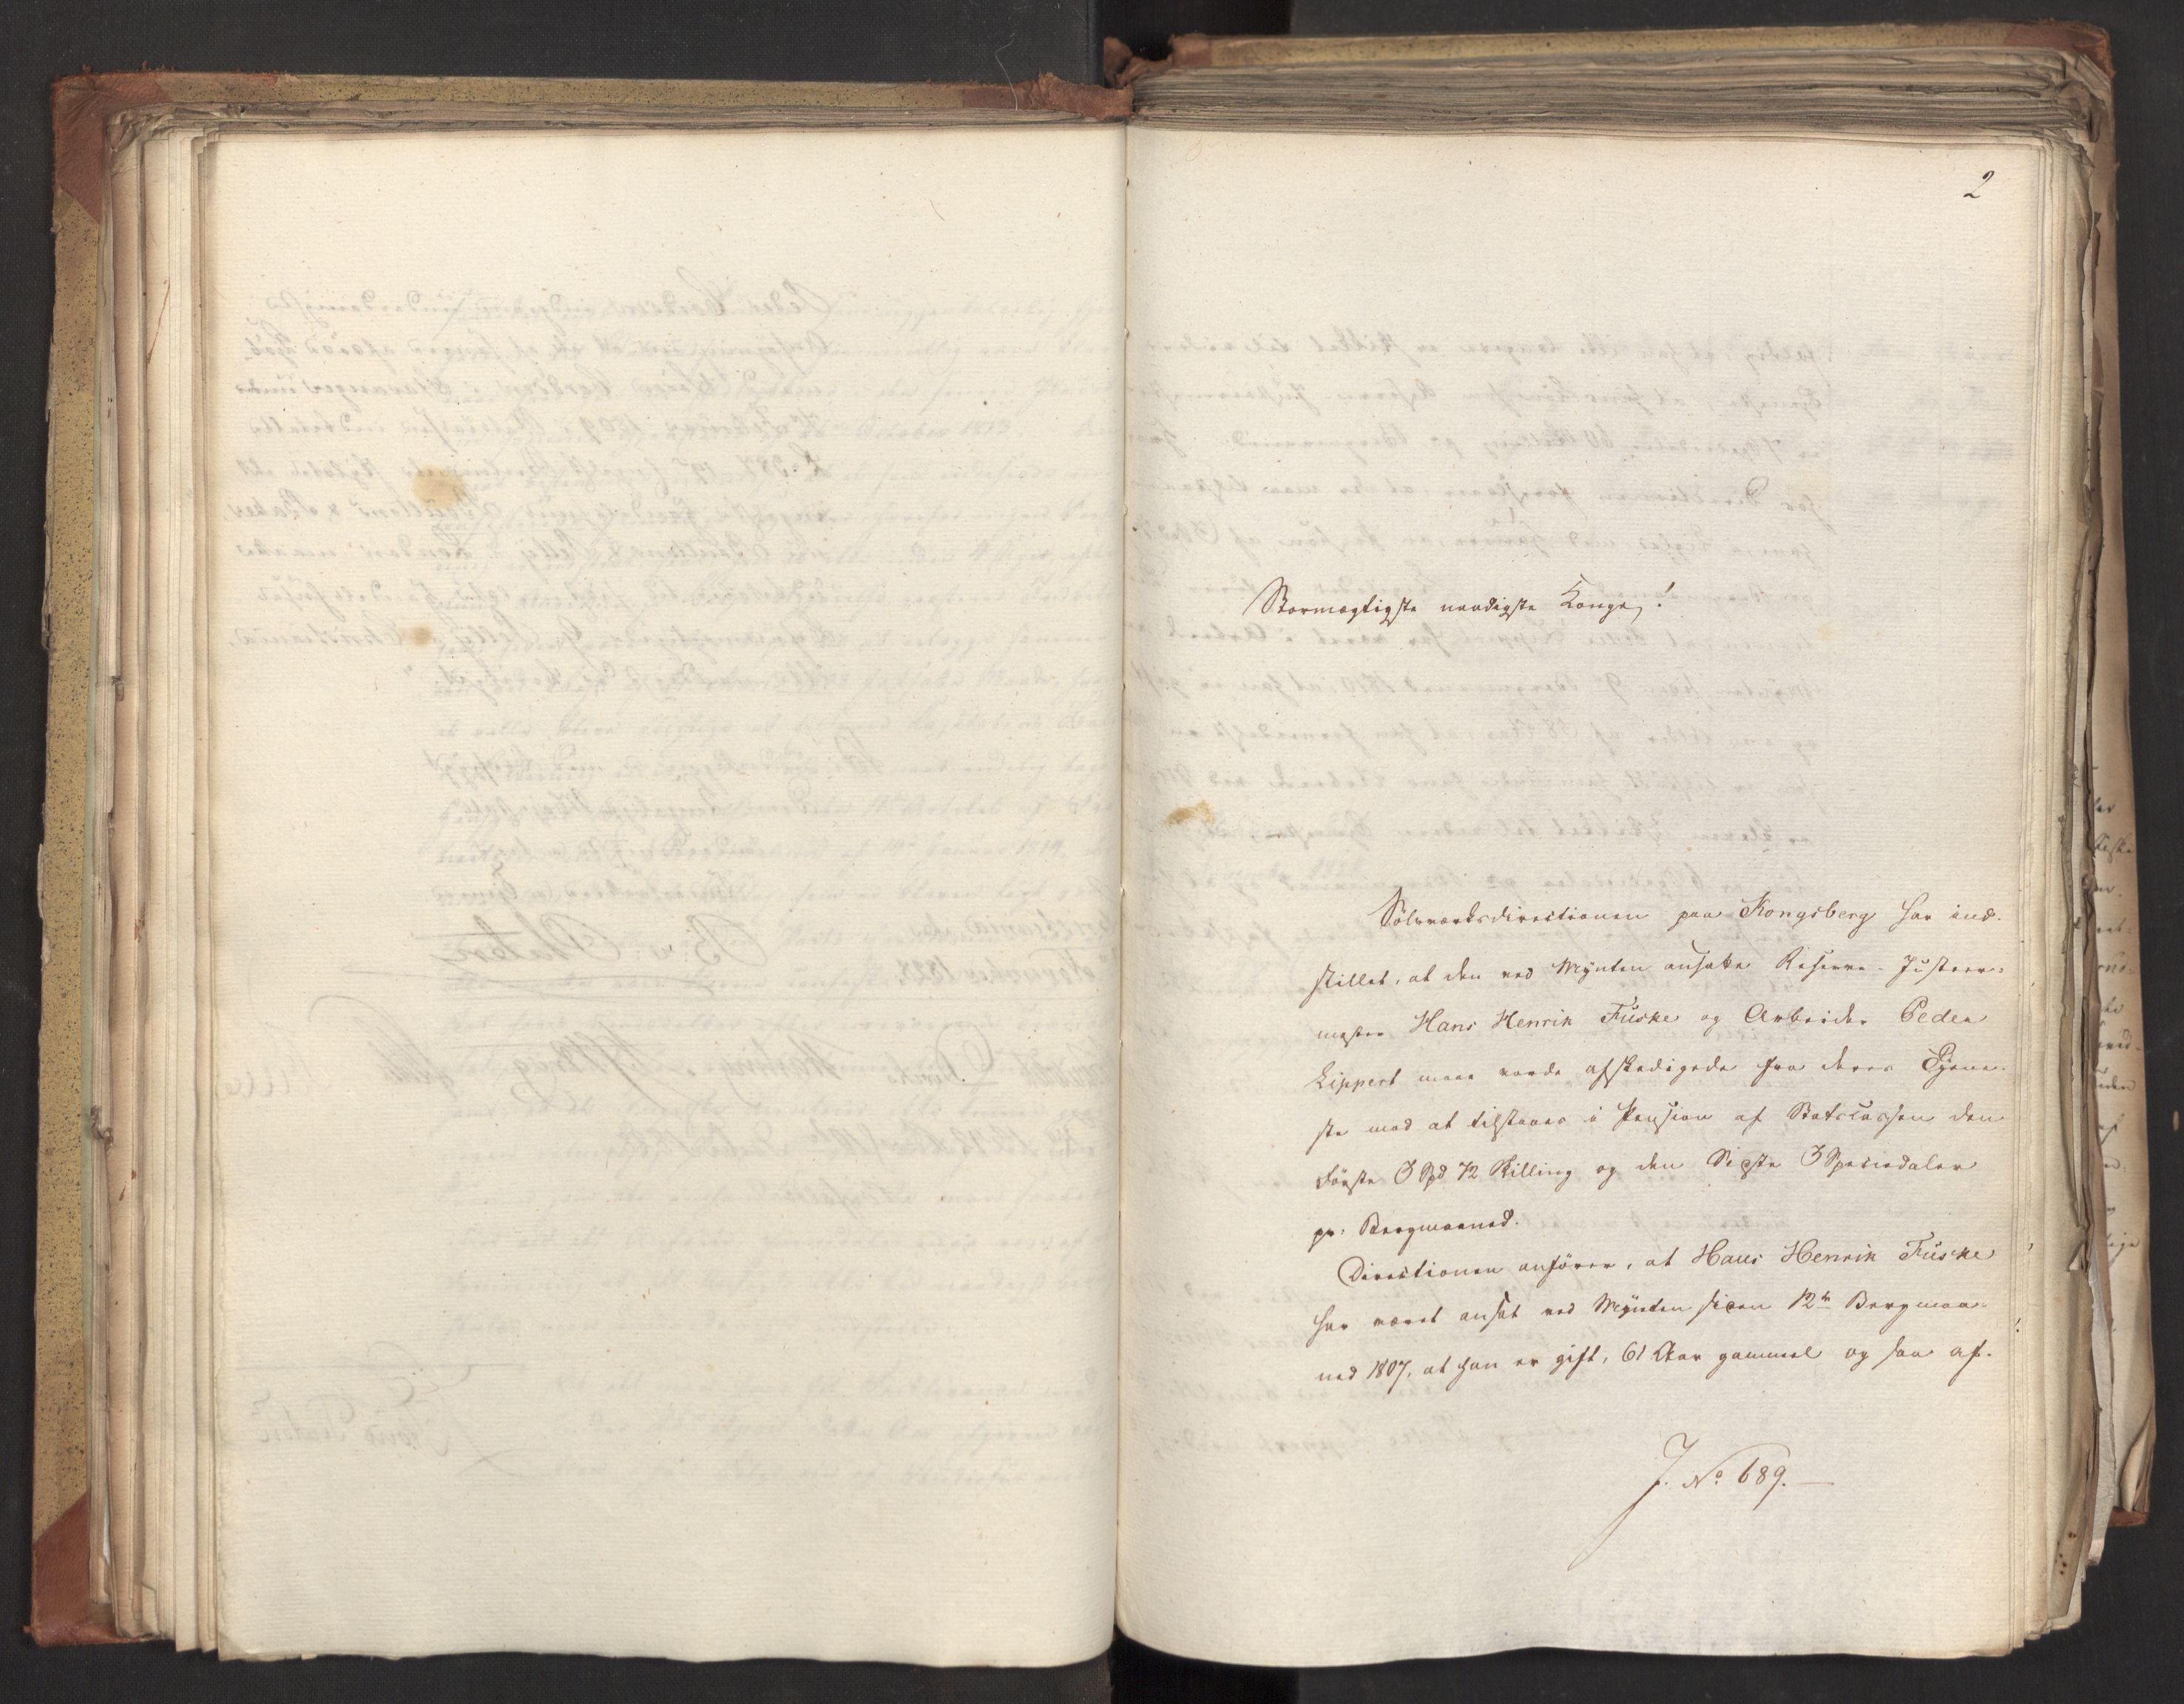 2
Stormægtigste naadigste Konge!
Sølvværksdirectionen paa Kongsberg har ind-
stillet, at den ved Mynten ansatte Reserve-Justeer-
mester Hans Henrik Fuske og Arbeider Peder
Lippert maae vorde afskedigede fra deres Tjene-
ste mod at tilstaaes i Pension af Statscassen den
Første 3 Spd 72 Skilling og den Sidste 3 Speciedaler
pr: Bergmaaned.
Directionen anfører, at Hans Henrik Fuske
har været ansat ved Mynten siden 12te Bergmaa-
ned 1807, at han er gift, 61 Aar gammel og saa af-
J. No 689.